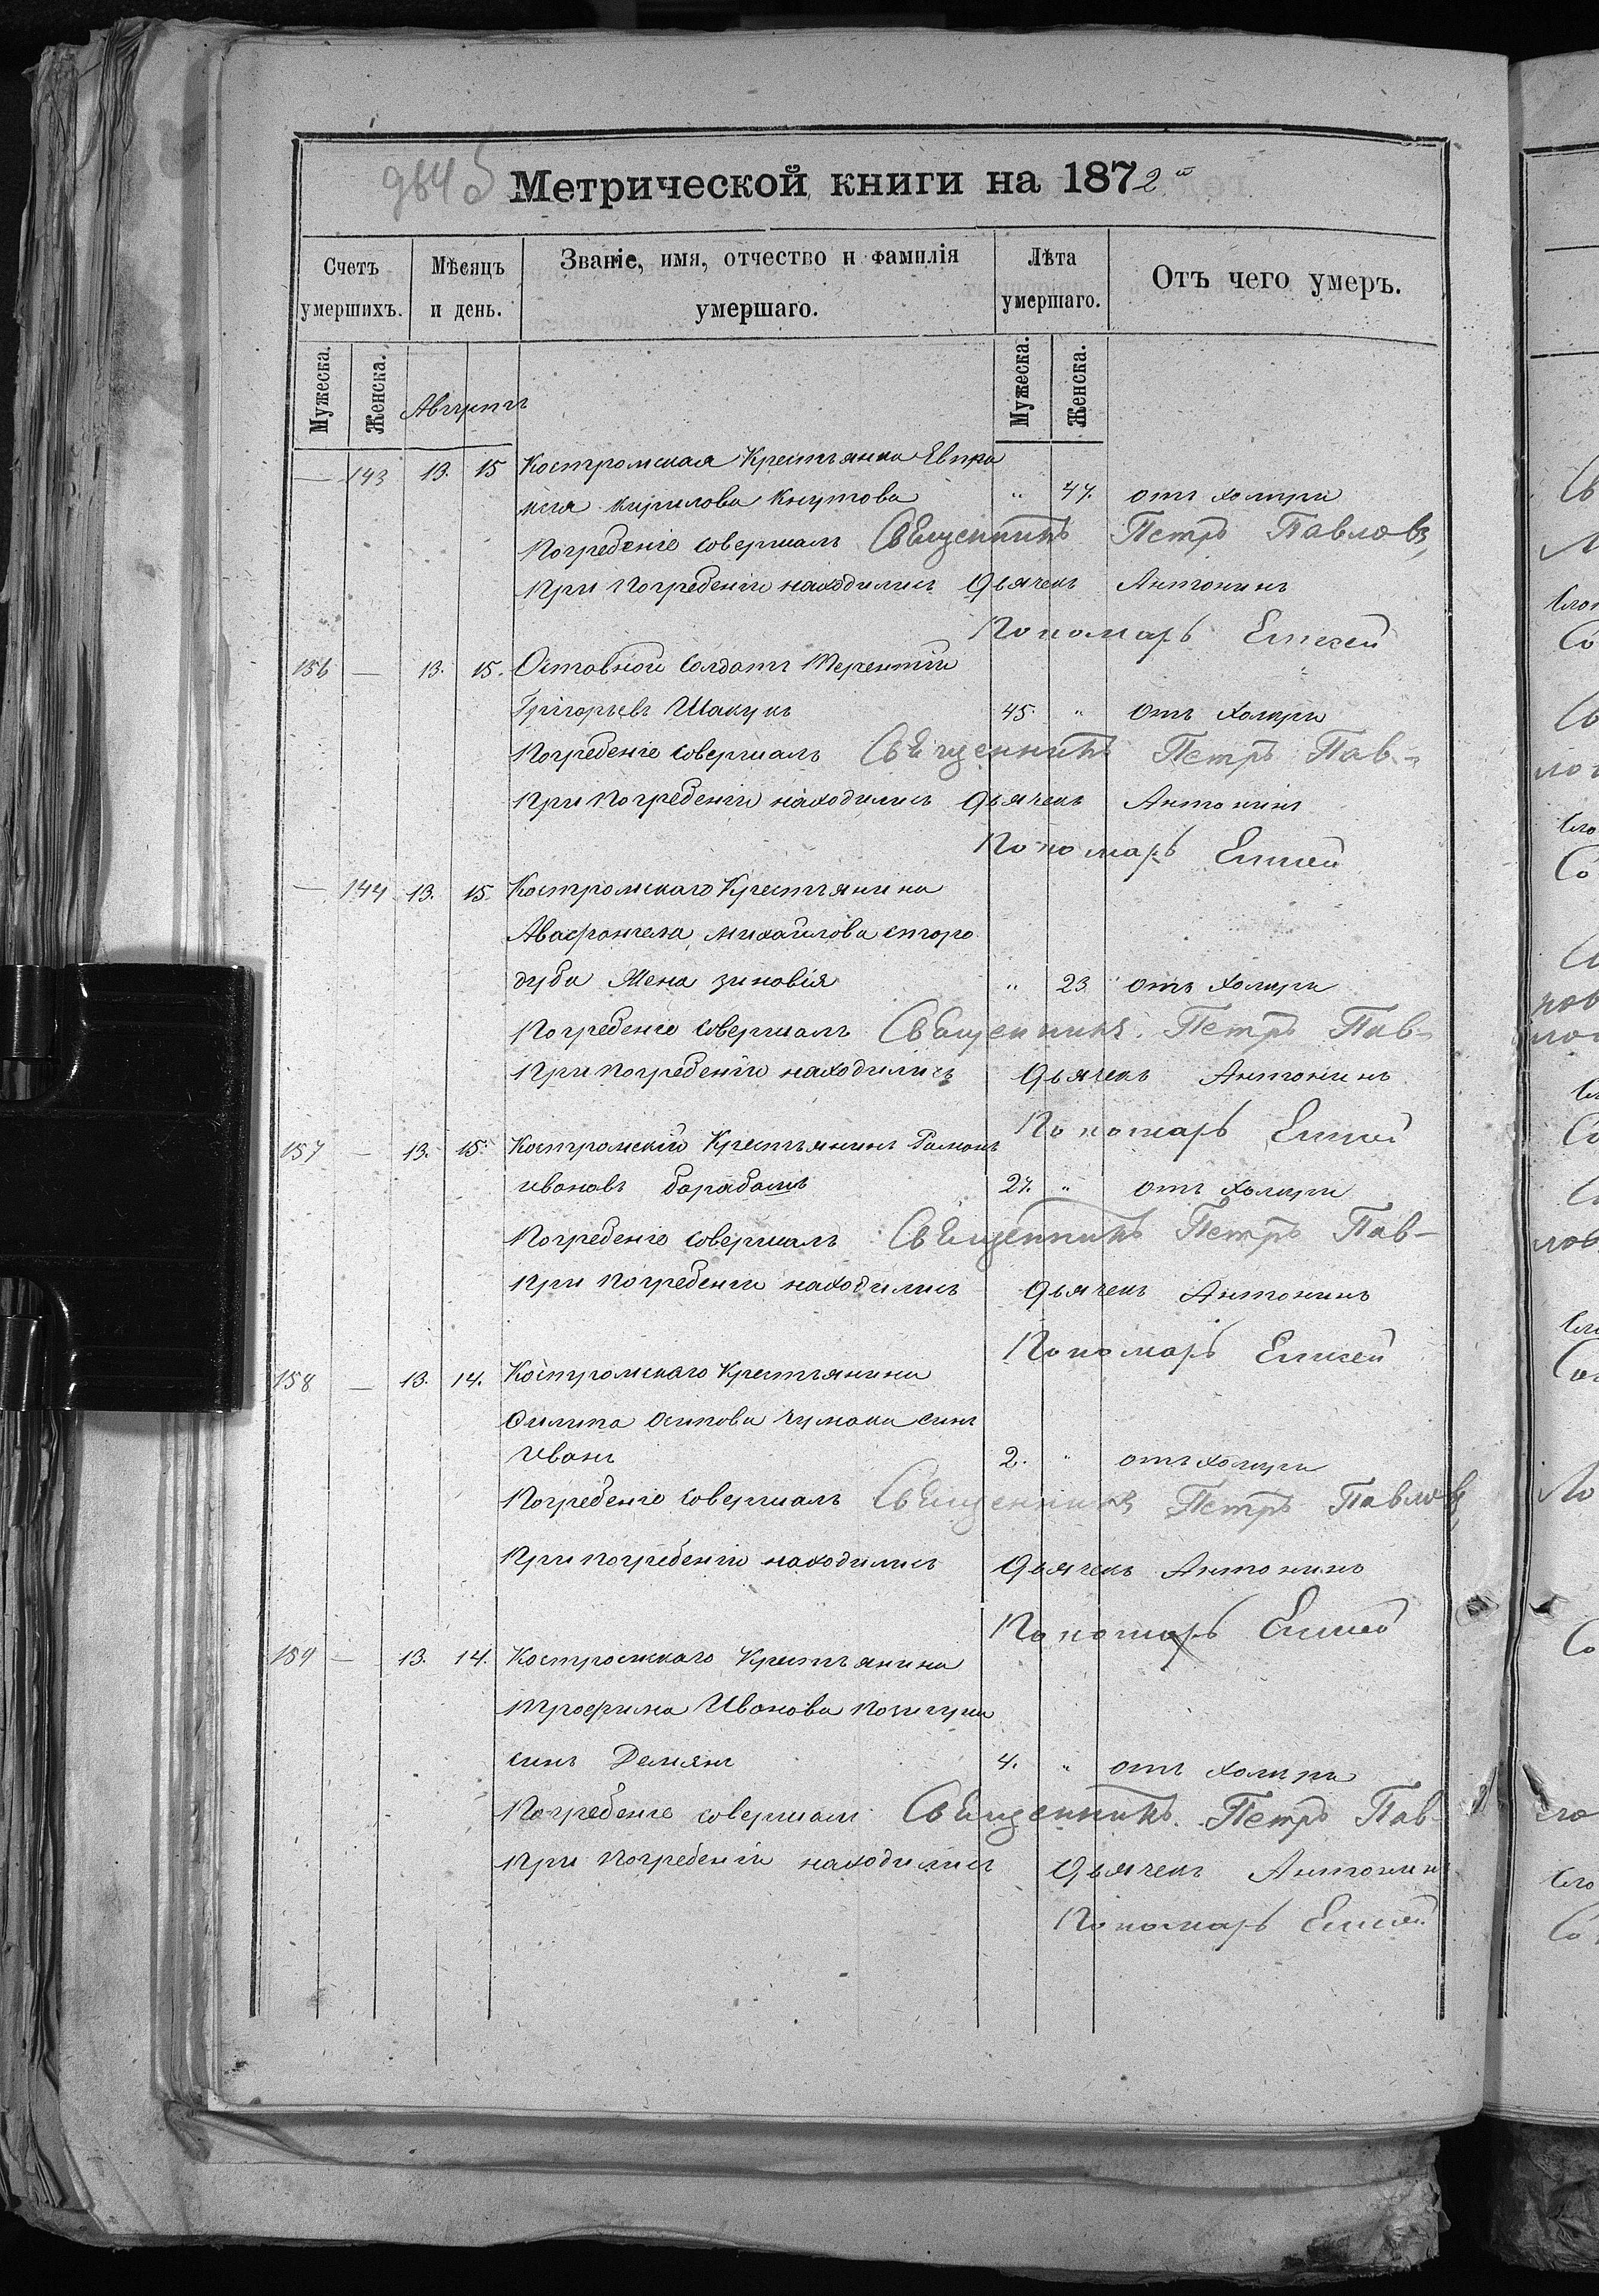 Метрической книги на 1872й
Счетъ умершихъ.
Мѣсяцъ и день.
Званіе, имя, отчество и фамилія умершаго.
Лѣта умершаго.
Отъ чего умеръ.
Мужеска. Женска. Августъ Мужеска. Женска.
— 143 13. 15 Костромская Крестьянка Евпра
ксія кирилова Кнутова " 47. отъ холеры
Погребеніе совершалъ Священникъ Петръ Павловъ
При Погребеніи находились Дьячекъ Антонинъ
Пономарь Елисей
156 — 13. 15. Отставной Солдатъ Терентій
Григорьевъ Шакунъ 45. " Отъ Холеры
Погребеніе совершалъ Священникъ Петръ Пав-
При Погребеніи находились Дьячекъ Антонинъ
Пономарь Елисей
— 144 13. 15. Костромскаго Крестьянина
михайлова старо
дуба Жена зиновія " 23 отъ Холеры
Погребеніе совершалъ Священникъ Петръ Пав-
При погребеніи находились Дьячекъ Антонинъ
Пономарь Елисей
157 — 13. 15. Костромскій Крестьянинъ
ивановъ барабашъ 27. " отъ Холеры
Погребеніе совершалъ Священникъ Петръ Пав-
При Погребеніи находились Дьячекъ Антонинъ
Пономарь Елисей
158 — 13. 14. Костромскаго Крестьянина
Филипа Осипова чумака синъ
Иванъ 2. " отъ холеры
Погребеніе совершалъ Священникъ Петръ Павловъ
При погребеніи находились Дьячекъ Антонинъ
Пономарь Елисей
159 — 13. 14. Костромскаго Крестьянина
Трофима Иванова
синъ Демянъ 4. " отъ холеры
Погребеніе совершалъ Священникъ Петръ Пав-
При Погребеніи находились Дьячекъ Антонинъ
Пономарь Елисей